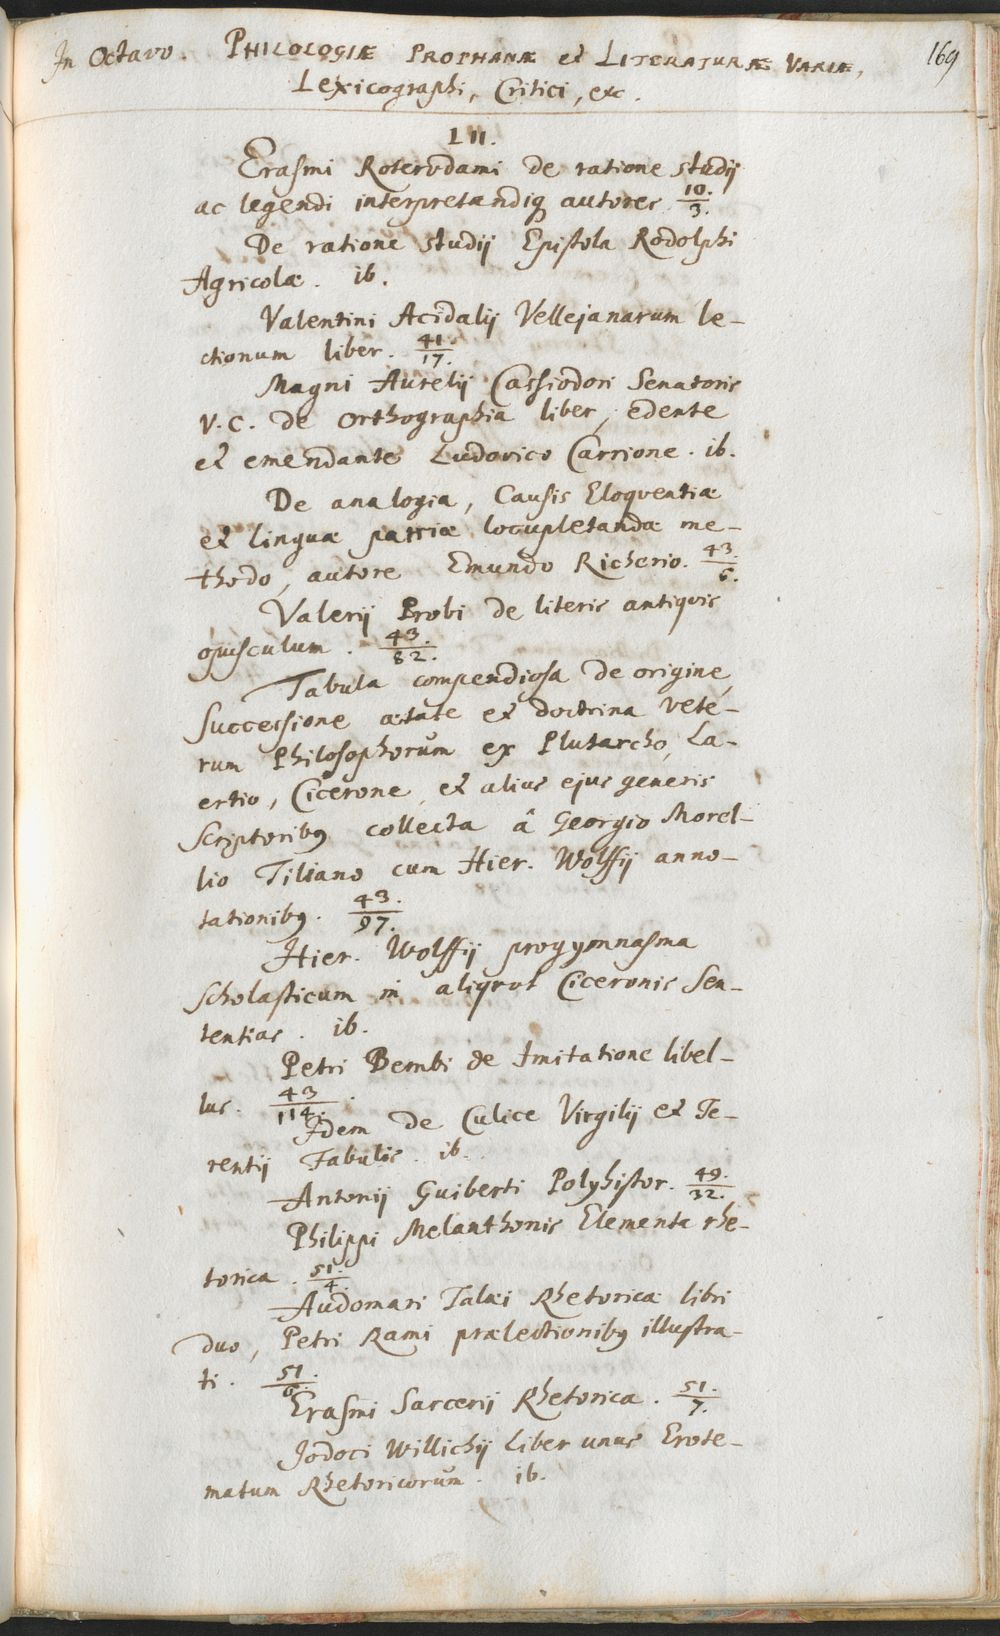 In Octavo. PHILOLOGIÆ PROPHANÆ et LITERATURÆ VARIÆ, 169
Lexicographi, Critici, etc.
LII.
Erasmi Roterodami de ratione studij
ac legendi interpretandiq autores. 10./3.
De ratione studij Epistola Rodolphi
Agricolæ. ib.
Valentini Acidalij Vellejanarum le-
ctionum liber. 41./17.
Magni Aurelij Cassiodori Senatoris
V.C. de Orthographia liber, edente
et emendante Ludovico Carrione. ib.
De analogia, Causis Eloquentiæ
et linguæ patriæ locupletandæ me-
thodo, autore Emundo Richerio. 43./6.
Valerij Probi de literis antiquis
opusculum. 43./82.
Tabula compendiosa de origine,
successione ætate et doctrina vete-
rum Philosophorum ex Plutarcho, La-
ertio, Cicerone, et alius ejus generis
Scriptoribꝰ collecta â Georgio Morel-
lio Tiliano cum Hier. Wolffij anno-
tationibꝰ. 43./97.
Hier. Wolffij progymnasma
scholasticum in aliquot Ciceronis Sen-
tentias. ib.
Petri Bembi de Imitatione libel-
lus. 43/114.
Idem de Culice Virgilij et Te-
rentij Fabulis. ib.
Antonij Guiberti Polyhistor. 49./32.
Philippi Melanthonis Elementa rhe-
torica. 51./4.
Audomari Talæi Rhetoricæ libri
duo, Petri Rami prælectionibꝰ illustra-
ti. 51./6.
Erasmi Sarcerij Rhetorica. 51./7.
Jodoci Willichij Liber unus Erote-
matum Rhetoricorum. ib.